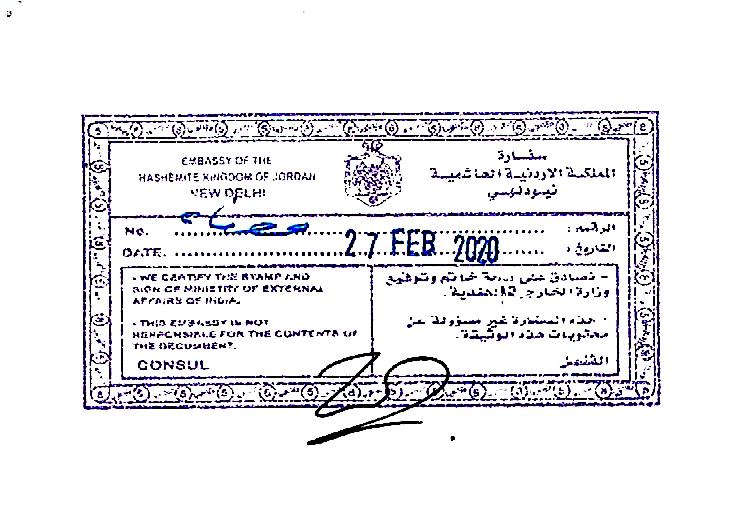 EMBASSY OF THE
HASHEMITE KINGDOM OF JORDAN
NEW DELHI
سفارة
المملكة الاردنية الهاشمية
نيودلهي
No. الرقم :
DATE. 27 FEB 2020 التاريخ :
- WE CERTIFY THE STAMP AND
SIGN OF MINISTRY OF EXTERNAL
AFFAIRS OF INDIA.
- THIS EMBASSY IS NOT
RESPONSIBLE FOR THE CONTENTS OF
THE DECUMENT.
CONSUL
- نصادق على صحة خاتم وتوقيع
وزارة الخارجية الهندية.
- هذه السفارة غير مسؤولة عن
محتويات هذه الوثيقة.
القنصل